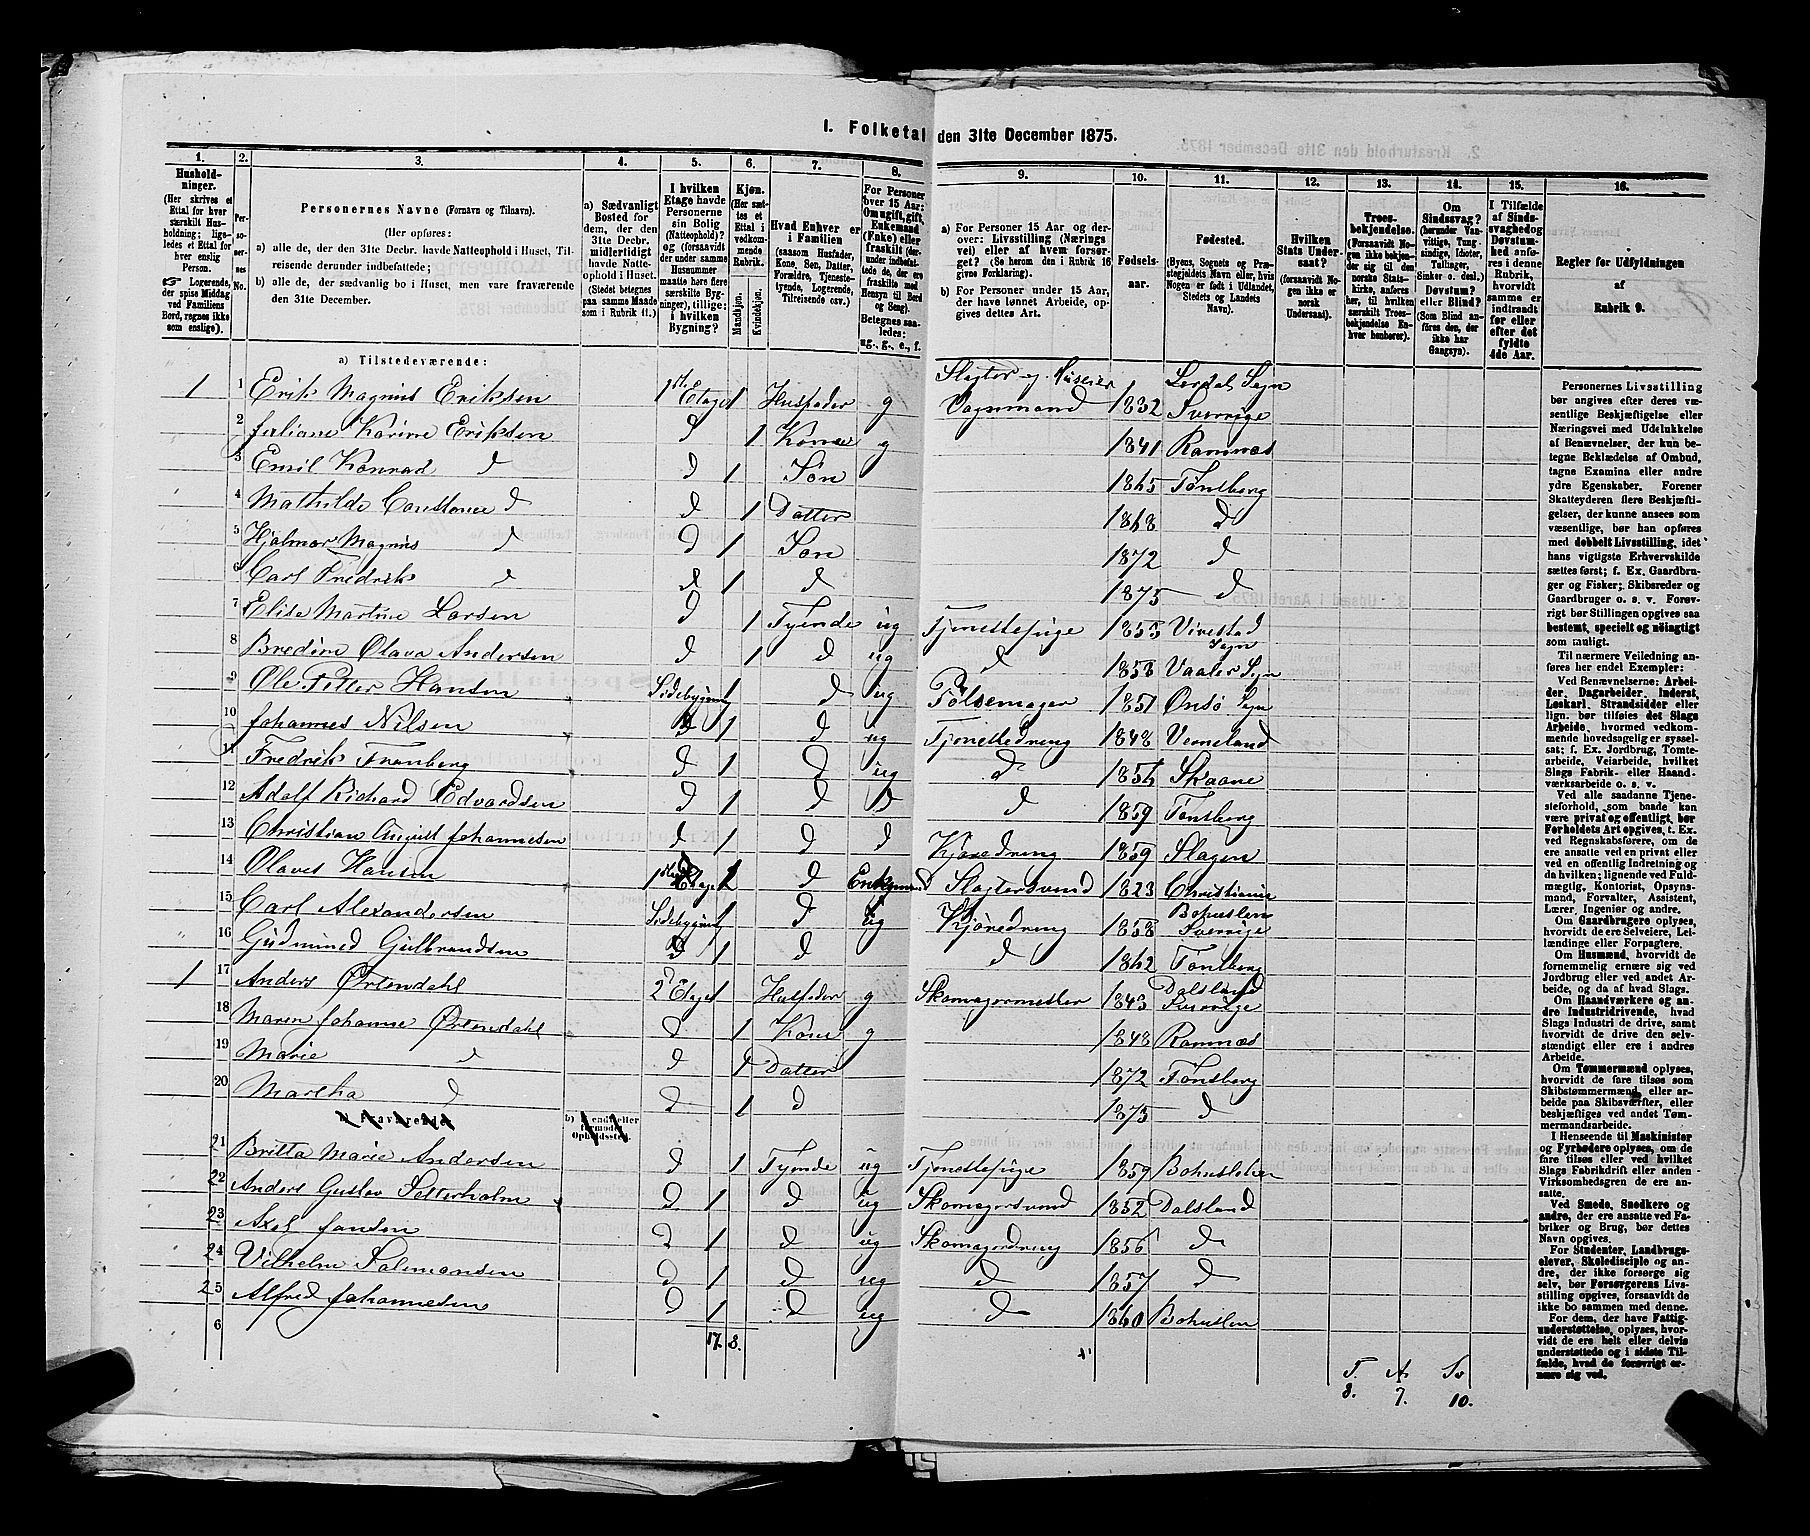 I. Folketal den 31te December 1875.
1. 2. 3. 4. 5. 6. 7. 8. 9. 10. 11. 12. 13. 14. 15. 16.
Hushold-
ninger.
(Her skrives et
Ettal for hver
særskilt Hus-
holdning; lige-
ledes et Ettal for
hver enslig
Person.
Logerende,
der spise Middag
ved Familiens
Bord, regnes ikke
som enslige).
Per-
so-
ner-
nes
No.
Personernes Navne (Fornavn og Tilnavn).
(Her opføres:
a) alle de, der den 31te Decbr. havde Natteophold i Huset, Til-
reisende derunder indbefattede;
b) alle de, der sædvanlig bo i Huset, men vare fraværende
den 31te December.
a) Sædvanligt
Bosted for
dem, der den
31te Decbr.
midlertidigt
havde Natte-
ophold i Huset.
(Stedet betegnes
paa samme Maade
som i Rubrik 11.)
I hvilken
Etage havde
Personerne
sin Bolig
(Natteophold)?
og (forsaavidt
der under samme
Husnummer
maatte høre flere
særskilte Byg-
ninger), tillige:
i hvilken
Bygning?
Kjøn.
(Her sæt-
tes et
Ettal i
vedkom-
mende
Rubrik.
Mandkjøn.
Kvindekjøn.
Hvad Enhver er
i Familien
(saasom Husfader,
Kone, Søn, Datter,
Forældre, Tjeneste-
tyende, Logerende,
Tilreisende osv.)
For Personer
over 15 Aar:
Om ugift, gift,
Enkemand
(Enke) eller
fraskilt (der-
under indbefat-
tede de, der ere
fraskilte med
Hensyn til Bord
og Seng).
Betegnes saa-
ledes:
ug., g., e., f.
a) For Personer 15 Aar og der-
over: Livsstilling (Nærings-
vei) eller af hvem forsør-
get? (Se herom den i Rubrik 16
givne Forklaring).
b) For Personer under 15 Aar,
der have lønnet Arbeide, op-
gives dettes Art.
Fødsels-
aar.
Fødested.
(Byens, Sognets og Præ-
stegjeldets Navn eller, hvis
Nogen er født i Udlandet,
Stedets og Landets
Navn).
Hvilken
Stats Under-
saat?
(forsaavidt No-
gen ikke er
norsk
Undersaat).
Troes-
bekjendelse.
(Forsaavidt No-
gen ikke bekjen-
der sig til den
norske Stats-
kirke, anføres
her, til hvilken
særskilt Troes-
bekjendelse En-
hver henhører).
Om
Sindssvag?
(herunder Van-
vittige, Tung-
sindige, Idioter,
Tullinger,
Sinker o. desl.)
Døvstum?
eller Blind?
(Som Blind an-
føres den, der
ikke har
Gangsyn).
I Tilfælde
af Sinds-
svaghed og
Døvstum-
hed anfø-
res i denne
Rubrik,
hvorvidt
samme er
indtraadt
før eller
efter det
fyldte
4de Aar.
Regler for Udfyldningen
af
Rubrik 9.
a) Tilstedeværende:
1 1 Erik Magnus Eriksen 1ste Etage 1 Husfader g Slagter og Huseier Vognmand 1832 Lerdal Sogn Sverrige
2 Juliane Karine Eriksen d 1 Kone g 1841 Ramnæs
3 Emil Konrad d d 1 Søn 1865 Tønsberg
4 Mathilde Constance d d 1 Datter 1868 d
5 Hjalmar Magnus d d 1 Søn 1872 d
6 Carl Fredrik d d 1 d 1875 d
7 Elise Martine Larsen d 1 Tyende ug Tjenestepige 1855 Vivestad Sogn
8 Bredine Olava Andersen d 1 d ug d 1856 Vaaler Sogn
9 Ole Petter Hansen Sidebygning 1 d ug Pølsemager 1851 Onsø Sogn
10 Johannes Nilsen d 1 d ug Tjenestedreng 1848 Vermeland
11 Fredrik Franberg d 1 d ug d 1854 Skaane
12 Adolf Richard Edvardsen d 1 d d d 1859 Tønsberg
13 Christian August Johannesen d 1 d d Kjøredreng 1859 Slagen
14 Olaves Hansen 1ste Etage 1 d Enkemand Slagtersvend 1823 Christiania
15 Carl Alexandersen Sidebygning 1 d ug Kjøredreng 1858 Bohuslen Sverrige
16 Gudmund Gulbrandsen d 1 d d 1862 Tønsberg
1 17 Anders Ørtendahl 2 Etage 1 Husfader g Skomagermester 1843 Dalsland Sverrige
18 Maren Johanne Ørtendahl d 1 Kone g 1848 Ramnæs
19 Marie d d 1 Datter 1872 Tønsberg
20 Martha d d 1 d 1875 d
b) Fraværende: b) Kjendt eller
formodet
Opholdssted.
21 Britta Marie Andersen d 1 Tyende ug Tjenestepige 1859 Bohuslehn
22 Anders Gustav Setterholm d 1 d ug Skomagersvend 1852 Dalsland
23 Axel Jansen d 1 d ug Skomagerdreng 1856 d
24 Vilhelm Salomonsen d 1 d ug d 1857 d
25 Alfred Johannesen d 1 d ug d 1860 Bohuslen
6
17. 8.
T. A. Sv
8. 7. 10.
Personernes Livsstilling
bør angives efter deres væ-
sentlige Beskjæftigelse eller
Næringsvei med Udelukkelse
af Benævnelser, der kun be-
tegne Beklædelse af Ombud,
tagne Examina eller andre
ydre Egenskaber. Forener
Skatteyderen flere Beskjæfti-
gelser, der kunne ansees som
væsentlige, bør han opføres
med dobbelt Livsstilling, idet
hans vigtigste Erhvervskilde
sættes først; f. Ex. Gaardbru-
ger og Fisker; Skibsreder og
Gaardbruger o. s. v. Forøv-
rigt bør Stillingen opgives saa
bestemt, specielt og nøiagtigt
som muligt.
Til nærmere Veiledning an-
føres her endel Exempler:
Ved Benævnelserne: Arbei-
der, Dagarbeider, Inderst,
Løskarl, Strandsidder eller
lign. bør tilføies det Slags
Arbeide, hvormed vedkom-
mende hovedsagelig er syssel-
sat; f. Ex. Jordbrug, Tomte-
arbeide, Veiarbeide, hvilket
Slags Fabrik- eller Haand-
værksarbeide o. s. v.
Ved alle saadanne Tjene-
steforhold, som baade kan
være privat og offentligt, bør
Forholdets Art opgives, t. Ex.
ved Regnskabsførere, om de
ere ansatte ved en privat eller
ved en offentlig Indretning og
da hvilken; lignende ved Fuld-
mægtig, Kontorist, Opsyns-
mand, Forvalter, Assistent,
Lærer, Ingeniør og andre.
Om Gaardbrugere oplyses,
hvorvidt de ere Selveiere, Lei-
lændinge eller Forpagtere.
Om Husmænd, hvorvidt de
fornemmelig ernære sig ved
Jordbrug eller ved andet Ar-
beide, og da af hvad Slags.
Om Haandværkere og an-
dre Industridrivende, hvad
Slags Industri de drive, samt
hvorvidt de drive den selv-
stændigt eller ere i andres
Arbeide.
Om Tømmermænd oplyses,
hvorvidt de fare tilsøs som
Skibstømmermænd, eller ar-
beide paa Skibsværfter, eller
beskjæftiges ved andet Tøm-
mermandsarbeide.
I Henseende til Maskinister
og Fyrbødere oplyses, om de
fare tilsøs eller ved hvilket
Slags Fabrikdrift eller anden
Virksomhedsgren de ere an-
satte.
Ved Smede, Snedkere og
andre, der ere ansatte ved Fa-
briker og Brug, bør dettes
Navn opgives.
For Studenter, Landbrugs-
elever, Skoledisciple og an-
dre, der ikke forsørge sig
selv, bør Forsørgerens Livs-
stilling opgives, forsaavidt de
ikke bo sammen med denne.
For dem, der have Fattig-
understøttelse, oplyses, hvor-
vidt de ere helt eller delvis
understøttede og i sidste Til-
fælde, hvad de forøvrigt er-
nære sig ved.